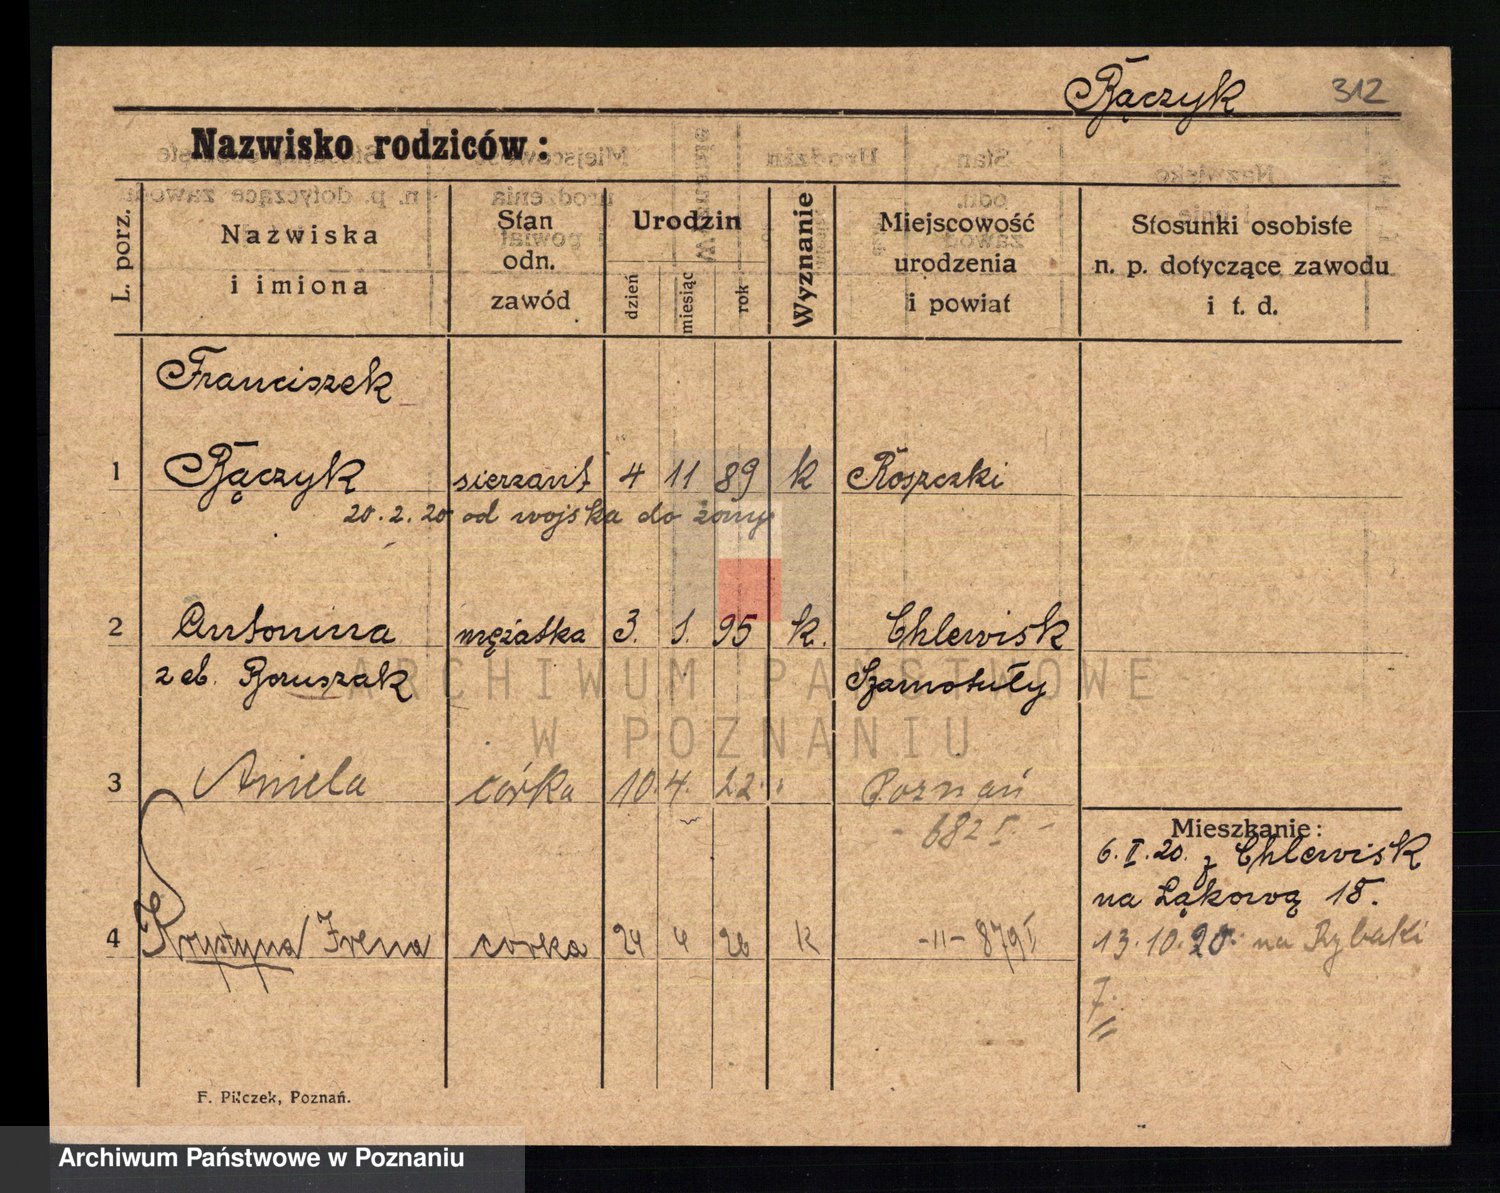 Bączyk 312
Nazwisko rodziców:
L. porz.
Nazwiska
i imiona
Stan
odn.
zawód
Urodzin
dzień
miesiąc
rok
Wyznanie
Miejscowość
urodzenia
i powiat
Stosunki osobiste
n. p. dotyczące zawodu
i t. d.
Franciszek
1 Bączyk sierzant 4 11 89 k Roszczki
20.2.20 od wojska do żony
2 Antonina mężatka 3. 1. 95 k. Chlewisk
z d. Boruszak Szamotuły
3 Aniela córka 10. 4. 22. Poznań
- 682 I. -
4 Krystyna Irena corka 24 4 26 k -11- 879 I
Mieszkanie:
6.I.20. z Chlewisk
na Łąkową 18.
13.10.20. na Rybaki
7.
F. Pilczek, Poznań.
ARCHIWUM PAŃSTWOWE
W POZNANIU
Archiwum Państwowe w Poznaniu